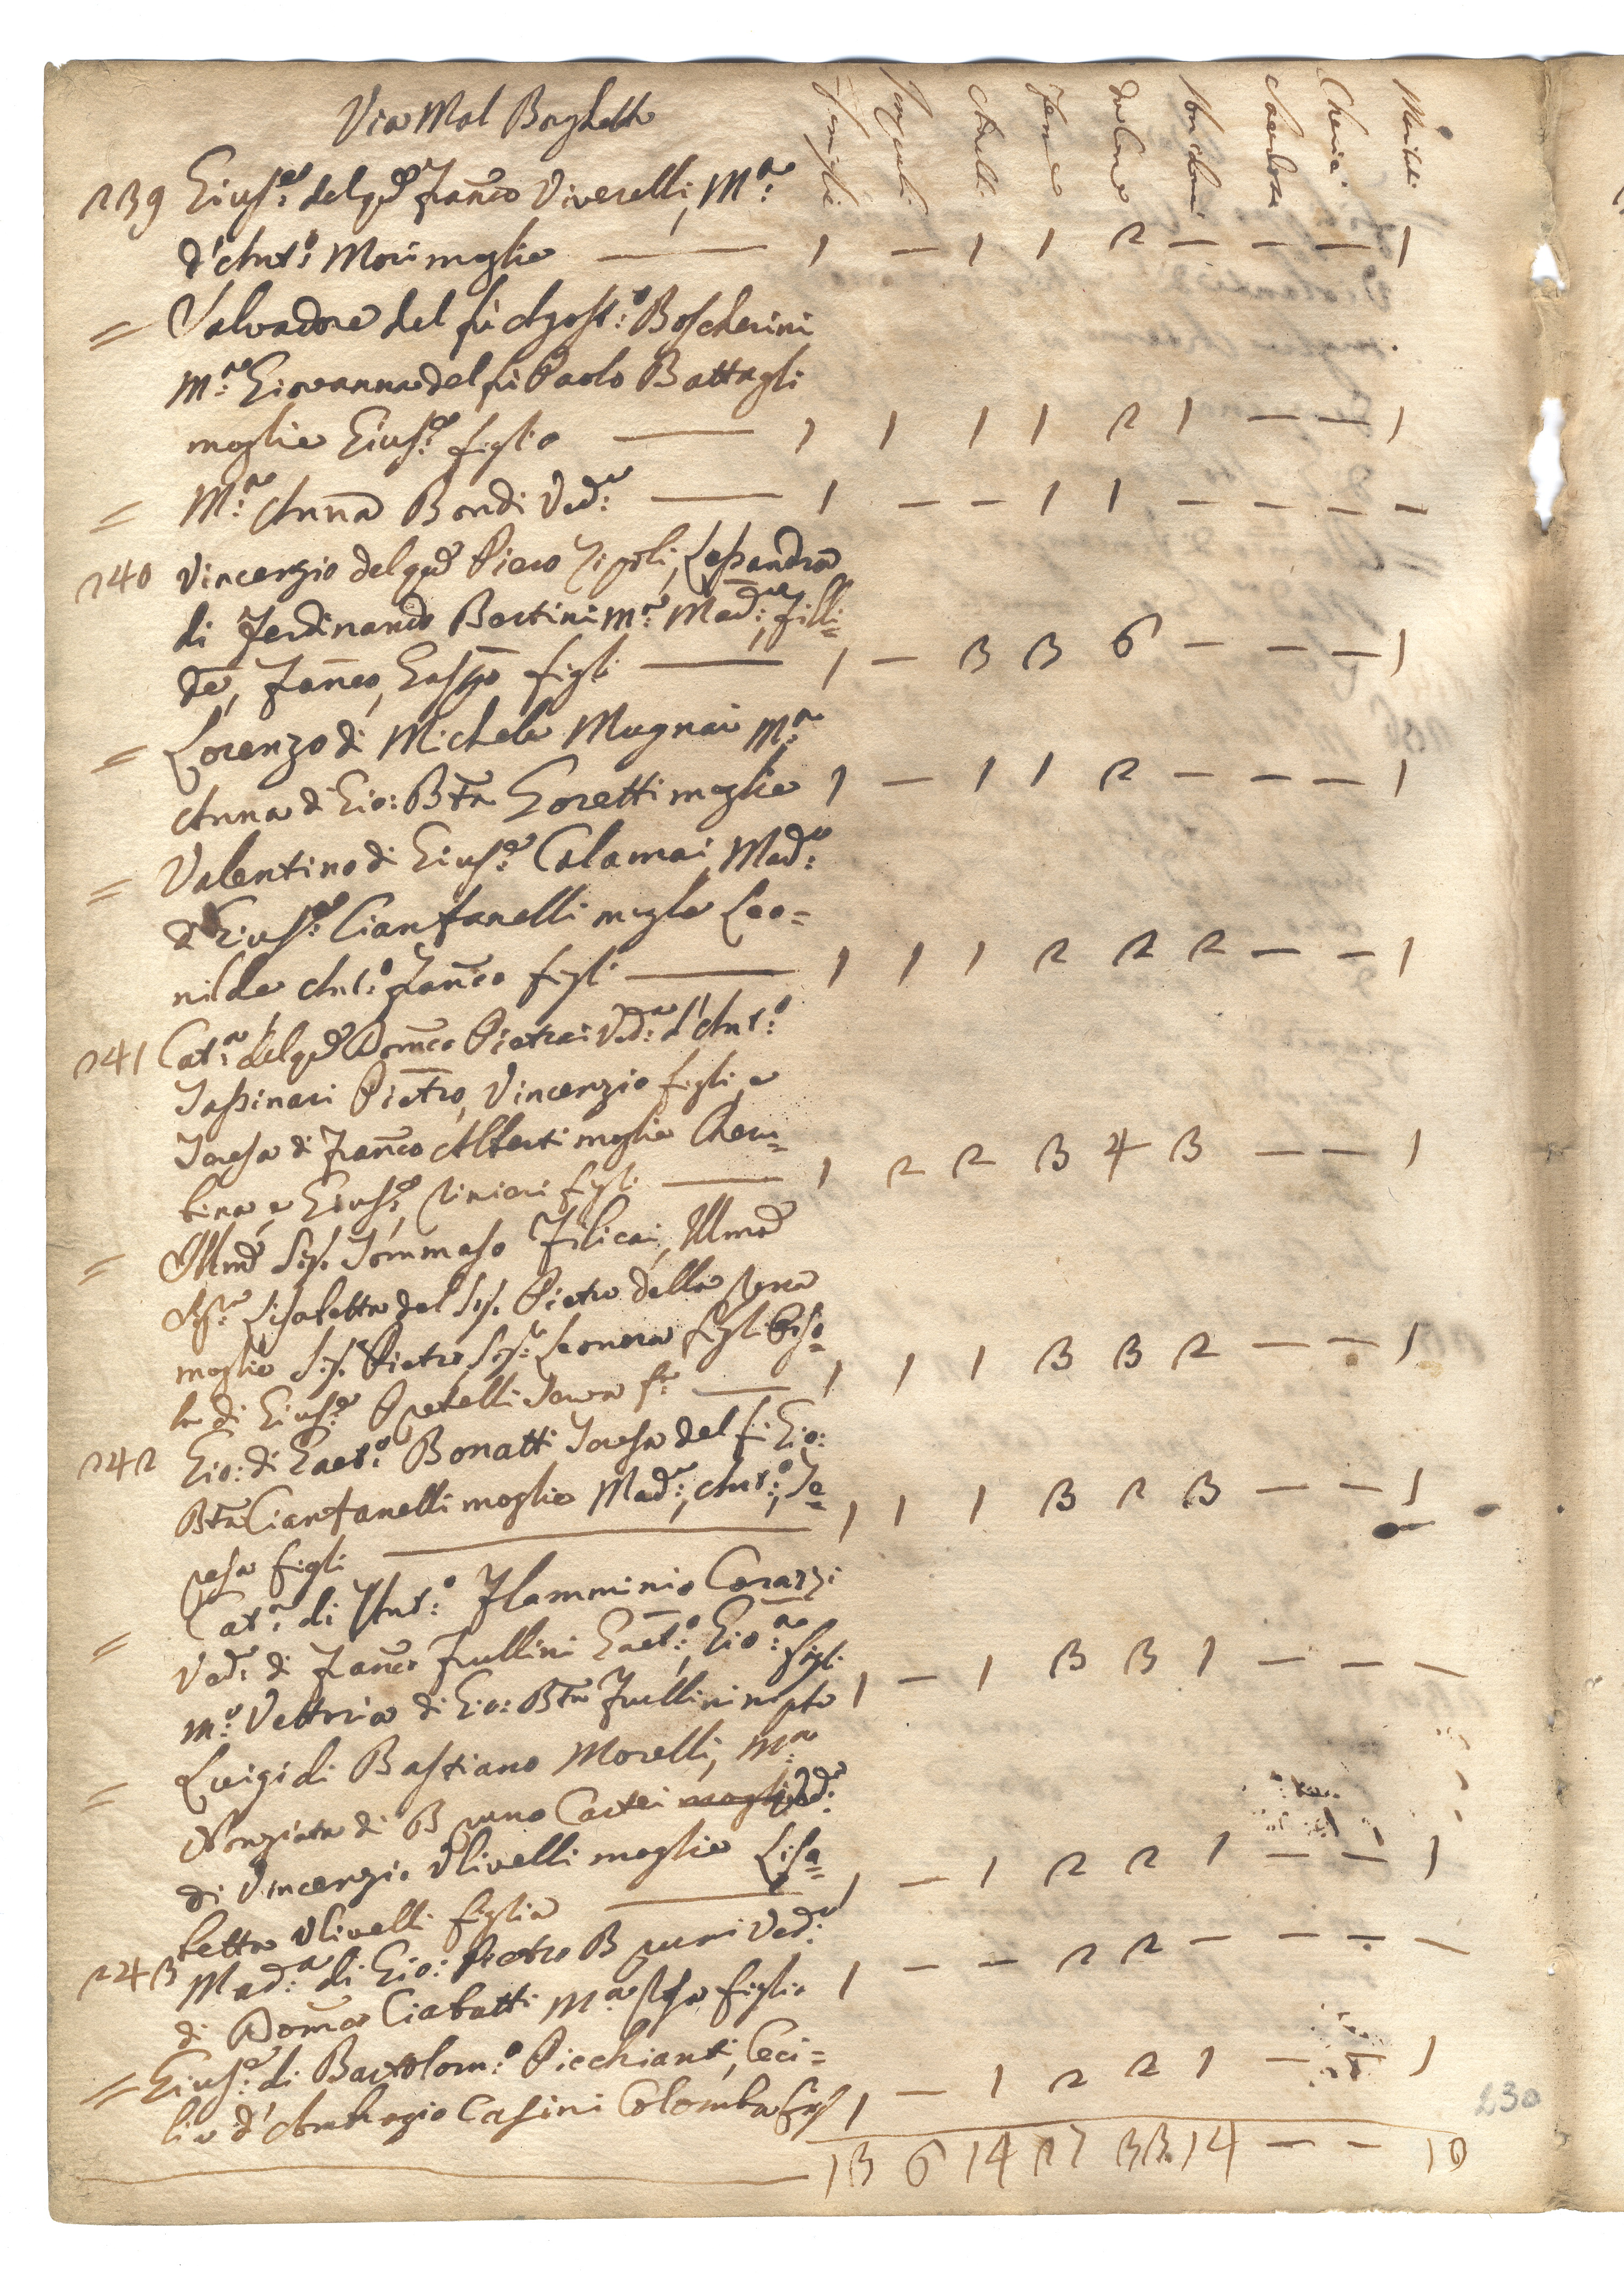 Via Mal Borghetto
Famiglie Impuberi Maschi Femmine Da Com.e Non Com. Sacerdoti Cherici Mariti
239 Gius.e del q.m Fran.co Viverelli, M.a
d'Ant.o Mori moglie — 1 — 1 1 2 — — — 1
= Salvadore del fù Agost.o Boscherini
M.a Giovanna del fù Paolo Battagli
moglie Gius.e figlio — 1 1 1 1 2 1 — — 1
= M.a Anna Bondi Ved.a — 1 — — 1 1 — — — —
240 Vincenzio del q.m Piero Zipoli, Lessandra
di Ferdinando Bertini M.a Mad.a, Filli=
de, Fran.co, Gasp.o figli — 1 — 3 3 6 — — — 1
= Lorenzo di Michele Mugnai M.a
Anna di Gio: Bta Goretti moglie 1 — 1 1 2 — — — 1
= Valentino di Gius.e Calamai, Mad.a
di Gius.e Cianfanelli moglie Leo=
nilde Ant.o Fran.co figli — 1 1 1 2 2 2 — — 1
241 Cat.a del q.m Dom.co Pietrai Ved.a d'Ant.o
Tassinari Pietro, Vincenzio figli, e
Teresa di Fran.co Alberti moglie Cheru=
bina, e Gius.e, Rinieri figli — 1 2 2 3 4 3 — — 1
= Illmo Sig. Tommaso Filicai, Illma
Sig.a Lisabetta del Sig. Pietro della Rena
moglie Sig. Pietro, Sig.a Leonora figli
la di Gius.e Serva — 1 1 1 3 3 2 — — 1
242 Gio: di Gaet.o Bonatti Teresa del fù Gio:
Bta Cianfanelli moglie Mad.a, Ant.o, Te=
resa figli — 1 1 1 3 2 3 — — 1
= Cat.a di Ant.o Flamminio Corazzi
Ved.a di Fran.co Frullini Gaet.o, Gio:a figli
M.a Vettoria di Gio: Bta Frullini nipote 1 — 1 3 3 1 — — —
= Luigi di Bastiano Morelli, M.a
Nonziata di Bruno Cartei moglie Ved.a
di Vincenzio Ulivelli moglie Lisa=
betta Ulivelli figlia — 1 — 1 2 2 1 — — 1
243 Mad.a di Gio: Pietro Bruni Ved.a
di Dom.co Ciabatti M.a Rosa figlia 1 — — 2 2 — — — —
= Gius.e di Bartolom.o Picchianti, Ceci=
lia d'Ambrogio Casini Colomba figl 1 — 1 2 2 1 — — 1
13 6 14 27 33 14 — — 10
230